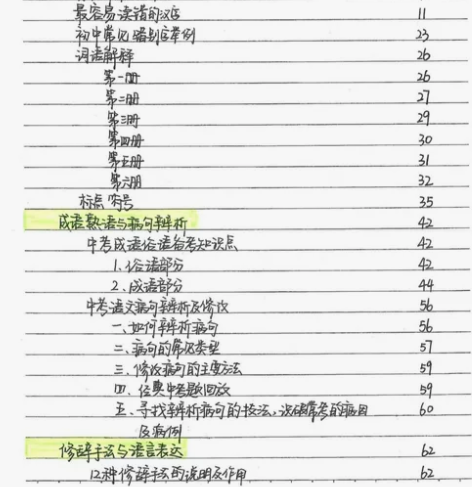 最容易读错的汉字 11
初中常见错别字举例 23
词语解释 26
第一册 26
第二册 27
第三册 29
第四册 30
第五册 31
第六册 32
标点符号 35
成语熟语与病句辨析 42
中考成语俗语备考知识点 42
1.俗语部分 42
2.成语部分 44
中考语文病句辨析及修改 56
一、如何辨析病句 56
二、病句的常见类型 57
三、修改病句的主要方法 59
四、经典中考题回放 59
五、寻找辨析病句的技法,常考的病因 60
及病例
修辞手法与语言表达 62
12种修辞手法的说明及作用 62